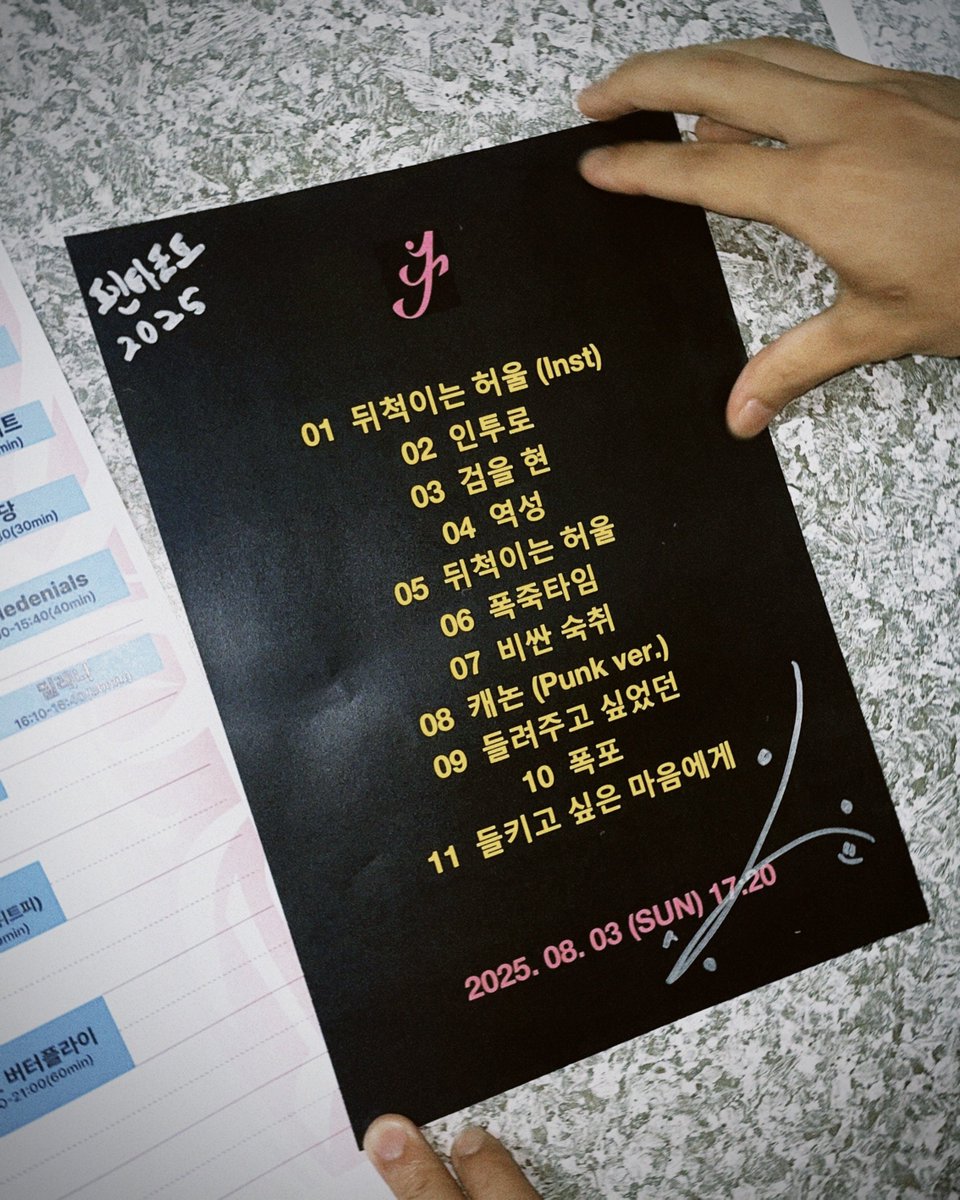 펜타포트
2025
01 뒤척이는 허울 (Inst)
02 인투로
03 검을 현
04 역성
05 뒤척이는 허울
06 폭죽타임
07 비싼 숙취
08 캐논 (Punk ver.)
09 들려주고 싶었던
10 폭포
11 들키고 싶은 마음에게
2025. 08. 03 (SUN) 17:20
트
min)
당
0(30min)
ledenials
0-15:40(40min)
16:10-16:40(30min)
트피)
min)
버터플라이
0-21:00(60min)